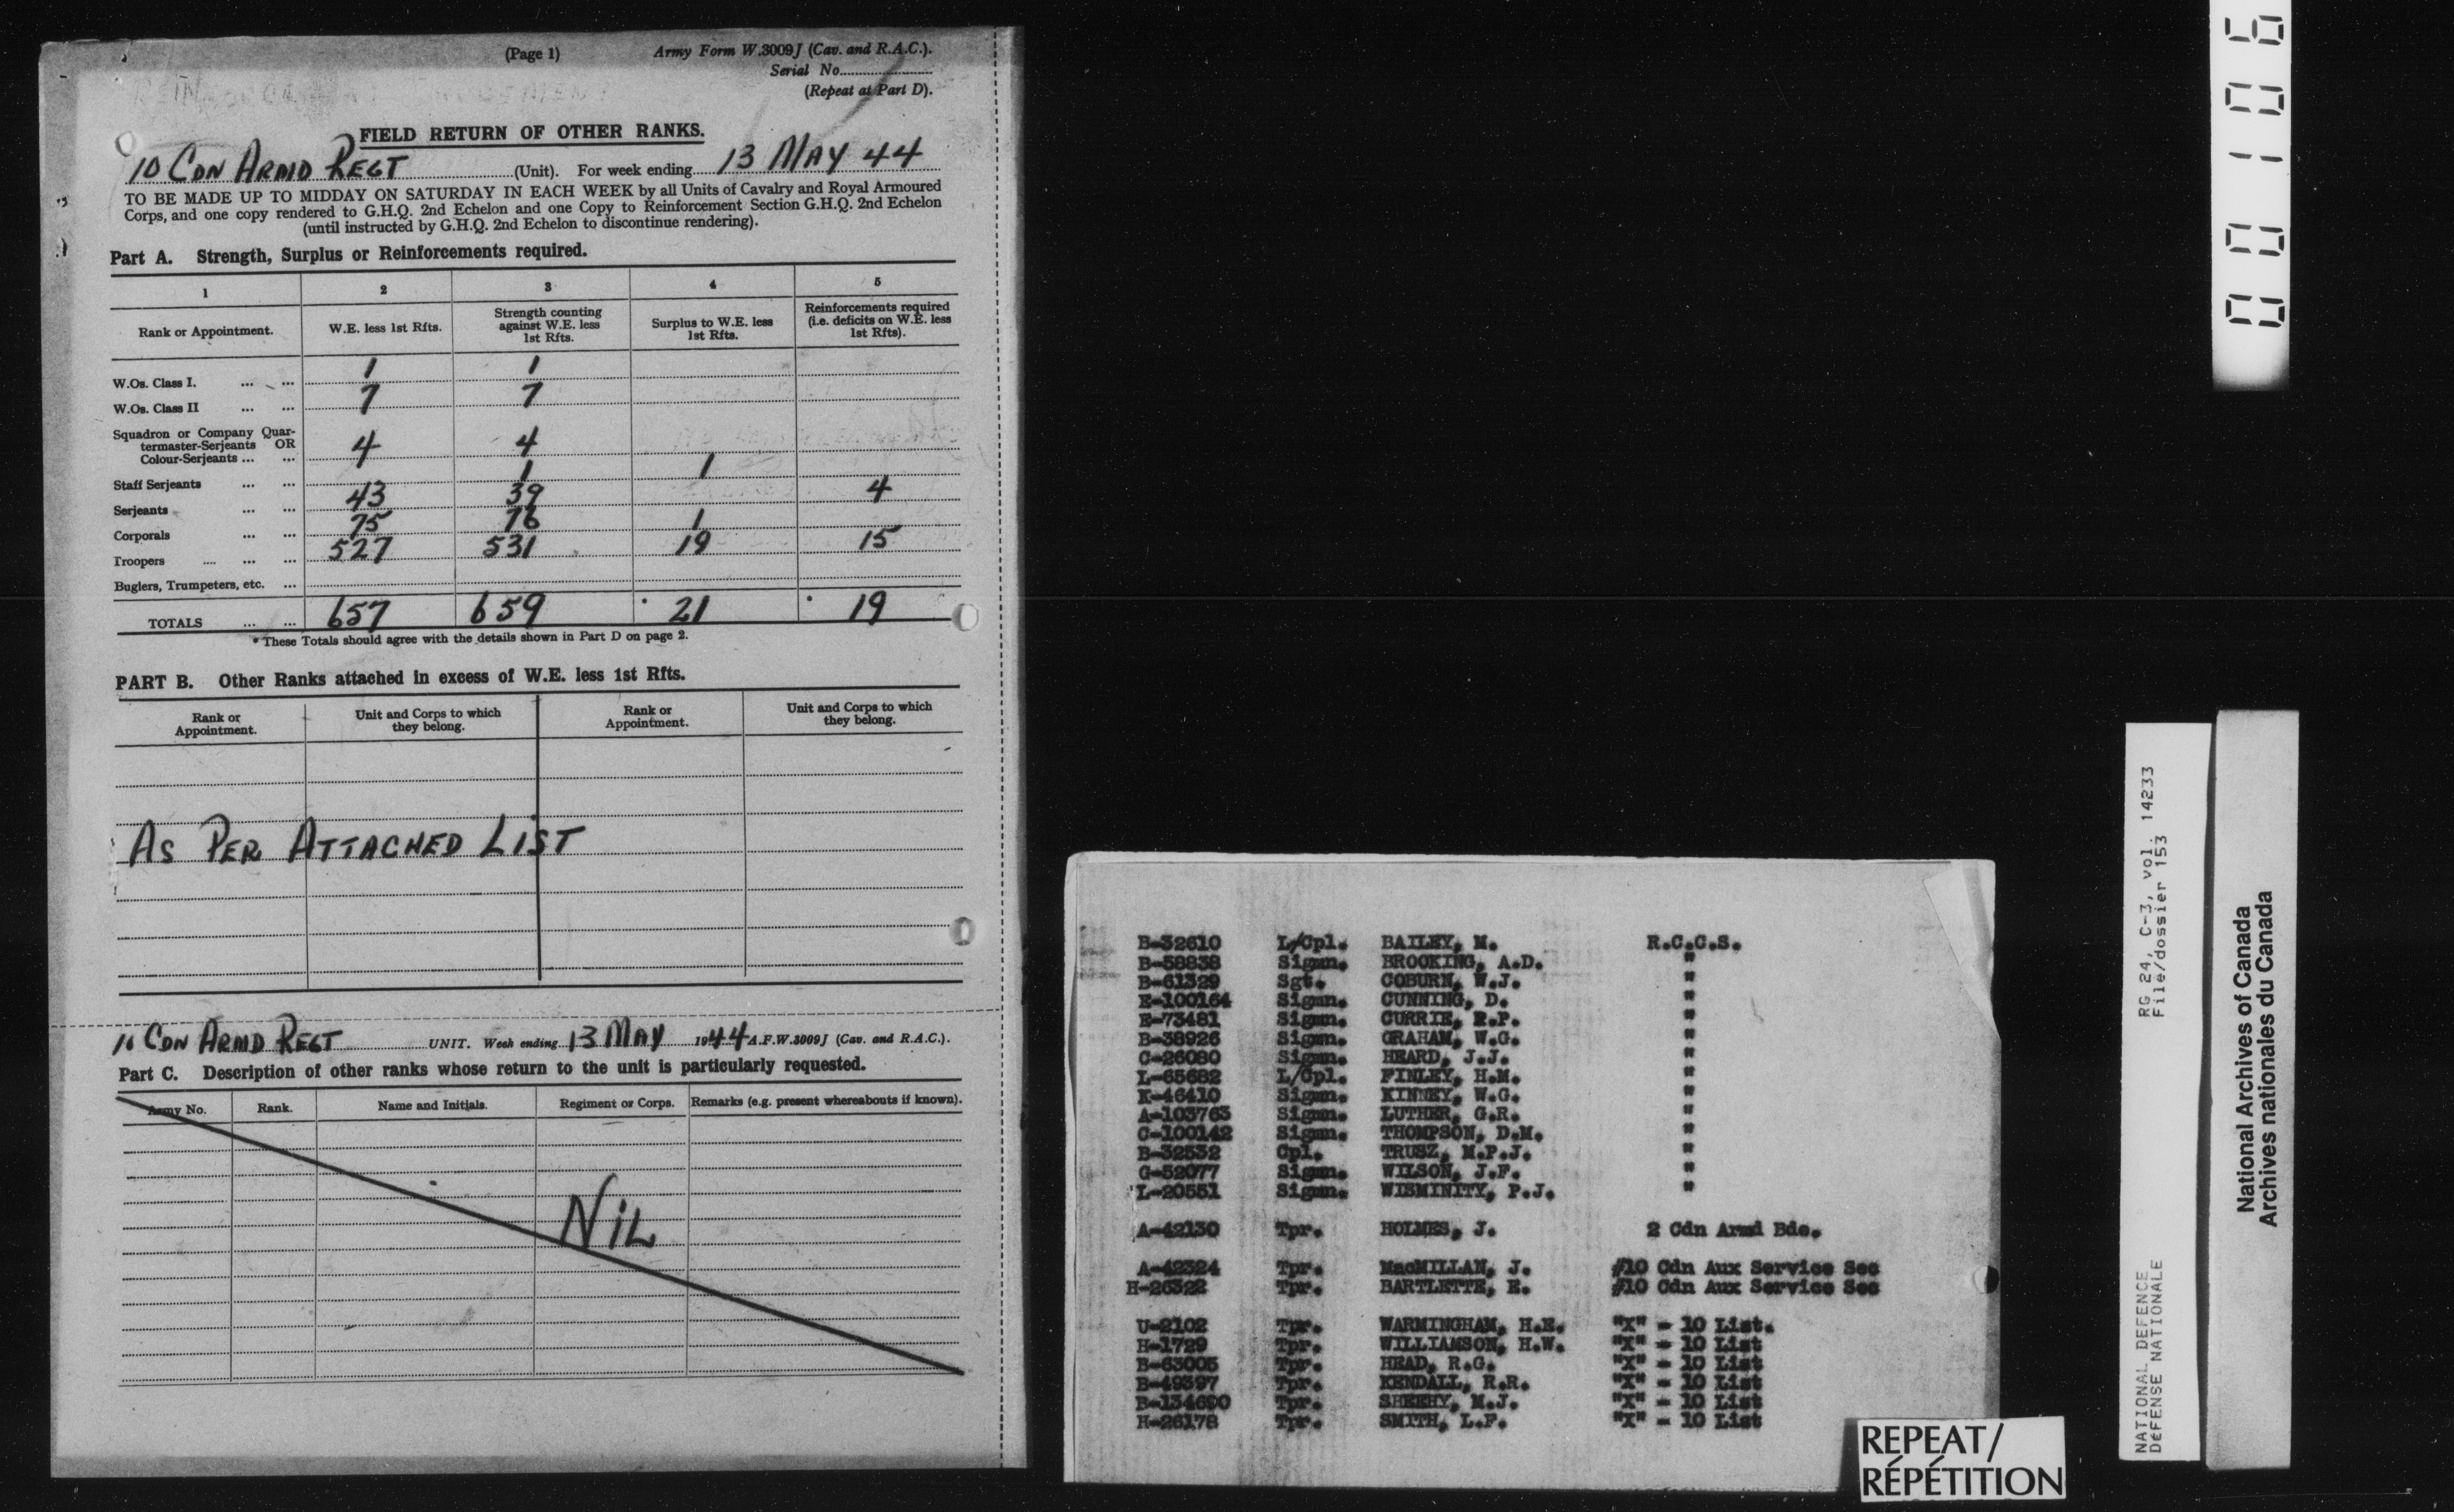 (Page 1)
Army Form W.3009J (Cav. and R.A.C.).
Serial No.
(Repeat at Part D).
FIELD RETURN OF OTHER RANKS.
10 CDN ARMD REGT (Unit). For week ending 13 MAY 44
TO BE MADE UP TO MIDDAY ON SATURDAY IN EACH WEEK by all Units of Cavalry and Royal Armoured
Corps, and one copy rendered to G.H.Q. 2nd Echelon and one Copy to Reinforcement Section G.H.Q. 2nd Echelon
(until instructed by G.H.Q. 2nd Echelon to discontinue rendering).
Part A. Strength, Surplus or Reinforcements required.
1 2 3 4 5
Rank or Appointment. W.E. less 1st Rfts. Strength counting against W.E. less 1st Rfts. Surplus to W.E. less 1st Rfts. Reinforcements required (i.e. deficits on W.E. less 1st Rfts).
W.Os. Class I. ... ... 1 1
W.Os. Class II ... ... 7 7
Squadron or Company Quar-
termaster-Serjeants OR
Colour-Serjeants ... ... 4 4
Staff Serjeants ... ... 1 1
Serjeants ... ... 43 39 4
Corporals ... ... 75 76 1
Troopers .... ... ... 527 531 19 15
Buglers, Trumpeters, etc. ...
TOTALS ... ... 657 659 21 19
* These Totals should agree with the details shown in Part D on page 2.
PART B. Other Ranks attached in excess of W.E. less 1st Rfts.
Rank or Appointment. Unit and Corps to which they belong. Rank or Appointment. Unit and Corps to which they belong.
AS PER ATTACHED LIST
10 CDN ARMD REGT UNIT. Week ending 13 MAY 1944 A.F.W.3009J (Cav. and R.A.C.).
Part C. Description of other ranks whose return to the unit is particularly requested.
Army No. Rank. Name and Initials. Regiment or Corps. Remarks (e.g. present whereabouts if known).
NIL
B-32610 L/Cpl. BAILEY, M. R.C.C.S.
B-58838 Sigmn. BROOKING, A.D. "
B-61329 Sgt. COBURN, W.J. "
E-100164 Sigmn. CUNNING, D. "
E-73481 Sigmn. CURRIE, R.P. "
B-38926 Sigmn. GRAHAM, W.G. "
C-26080 Sigmn. HEARD, J.J. "
L-65682 L/Cpl. FINLEY, H.M. "
K-46410 Sigmn. KINNEY, W.G. "
A-103763 Sigmn. LUTHER, G.R. "
C-100142 Sigmn. THOMPSON, D.M. "
B-32532 Cpl. TRUSZ, M.P.J. "
G-52077 Sigmn. WILSON, J.F. "
L-20551 Sigmn. WISMINITY, P.J. "
A-42130 Tpr. HOLMES, J. 2 Cdn Armd Bde.
A-42324 Tpr. MacMILLAN, J. #10 Cdn Aux Service Sec
H-26322 Tpr. BARTLETTE, E. #10 Cdn Aux Service Sec
U-2102 Tpr. WARMINGHAM, H.E. "X" - 10 List.
H-1729 Tpr. WILLIAMSON, H.W. "X" - 10 List
B-63005 Tpr. HEAD, R.G. "X" - 10 List
B-49397 Tpr. KENDALL, R.R. "X" - 10 List
B-134690 Tpr. SHEEHY, M.J. "X" - 10 List
H-26178 Tpr. SMITH, L.F. "X" - 10 List
REPEAT/
RÉPÉTITION
001106
RG 24, C-3, vol. 14233
File/dossier 153
NATIONAL DEFENCE
DÉFENSE NATIONALE
National Archives of Canada
Archives nationales du Canada